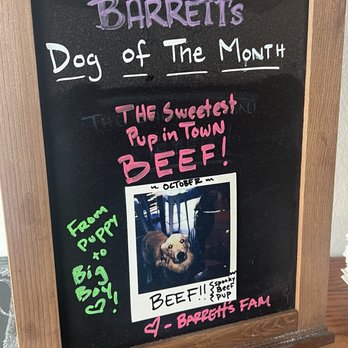 BARRETT's
Dog of The Month
THE Sweetest
Pup in Town
BEEF!
~ OCTOBER ~
From
Puppy
to
Big
Boy!
BEEF!!
Spooky
Beef
Pup
- BARRETT's FAM